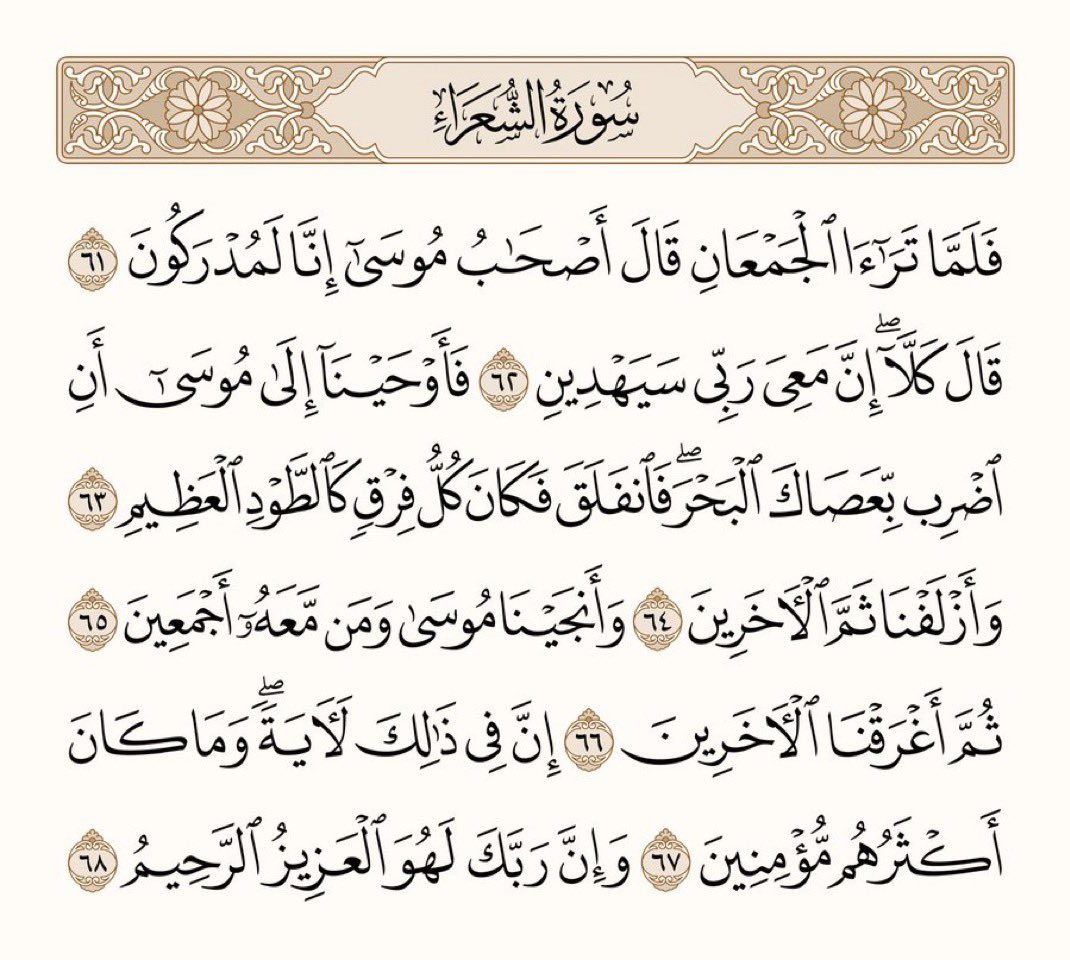 سُورَةُ الشُّعَرَاءِ
فَلَمَّا تَرَٰٓءَا ٱلۡجَمۡعَانِ قَالَ أَصۡحَٰبُ مُوسَىٰٓ إِنَّا لَمُدۡرَكُونَ ٦١
قَالَ كَلَّآۖ إِنَّ مَعِيَ رَبِّي سَيَهۡدِينِ ٦٢ فَأَوۡحَيۡنَآ إِلَىٰ مُوسَىٰٓ أَنِ
ٱضۡرِب بِّعَصَاكَ ٱلۡبَحۡرَۖ فَٱنفَلَقَ فَكَانَ كُلُّ فِرۡقٖ كَٱلطَّوۡدِ ٱلۡعَظِيمِ ٦٣
وَأَزۡلَفۡنَا ثَمَّ ٱلۡأٓخَرِينَ ٦٤ وَأَنجَيۡنَا مُوسَىٰ وَمَن مَّعَهُۥٓ أَجۡمَعِينَ ٦٥
ثُمَّ أَغۡرَقۡنَا ٱلۡأٓخَرِينَ ٦٦ إِنَّ فِي ذَٰلِكَ لَأٓيَةٗۖ وَمَا كَانَ
أَكۡثَرُهُم مُّؤۡمِنِينَ ٦٧ وَإِنَّ رَبَّكَ لَهُوَ ٱلۡعَزِيزُ ٱلرَّحِيمُ ٦٨